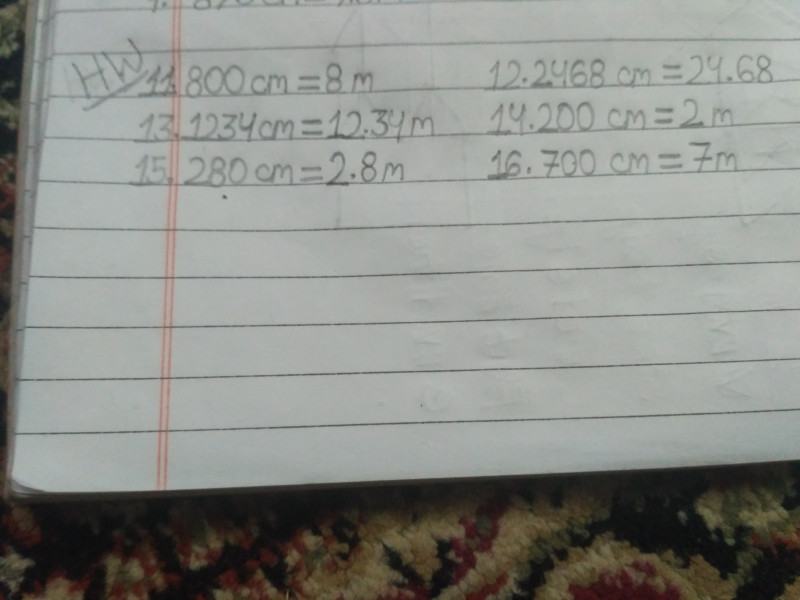 HW
11. 800 cm = 8 m 12. 2468 cm = 24.68
13. 1234 cm = 12.34 m 14. 200 cm = 2 m
15. 280 cm = 2.8 m 16. 700 cm = 7m